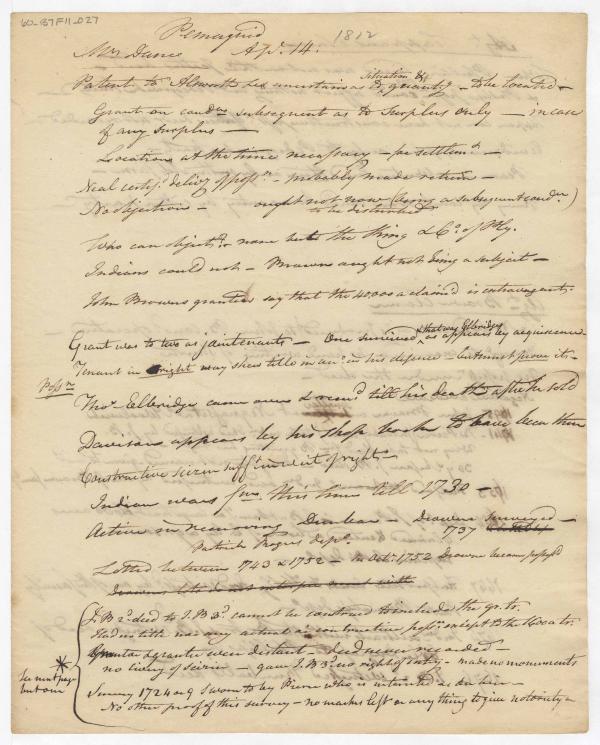 60-B7F11-027
Pemaquid
Mr Dane Ap. 14. 1812
Patent to Elsworth &c uncertain as to situation & quantity - to be located -
Grant on condns subsequent as to surplus only - in case
of any surplus -
Locations at the time necessary - for settlemt -
Neal certifd delivy of possn - probably made return -
No objection - ought not now (being a subsequent condn)
to be disturbed
Who can object? - none but the King & Co. of Ply.
Indians could not - Brown ought not being a subject -
John Browns grantees say that the 40,000 a claimd is extravagant.
Grant was to two as jointenants - One survived, & that was Elbridge as appears by acquiescence
Tenant in right may shew title in anr in his defence - but must prove it -
Possn
Thos. Elbridge came over & remd till his death after he sold
Davison appears by his shop books to have been then
Constructive seizin sufft in writ of right -
Indian wars from this time till 1730 -
Active in removing Dunbar - Drowne surveyed -
1737
Patrick Rogers depo.
Lotted between 1743 & 1752 - in Octr 1752 Drowne became possess'd
J. B 2d deed to J. B 3d cannot be construed to include the gr. tr.
Had no title nor any actual or constructive possn except to the 800 a tr.
& grantee were distant - deed never recorded -
no livery of seizin - gave J. B 3d no right of entry - made no monuments
Survey 1724 or 9 sworn to by Pierce who is interested as an heir -
No other proof of this survey - no marks left or any thing to give notoriety -
See next page
but one